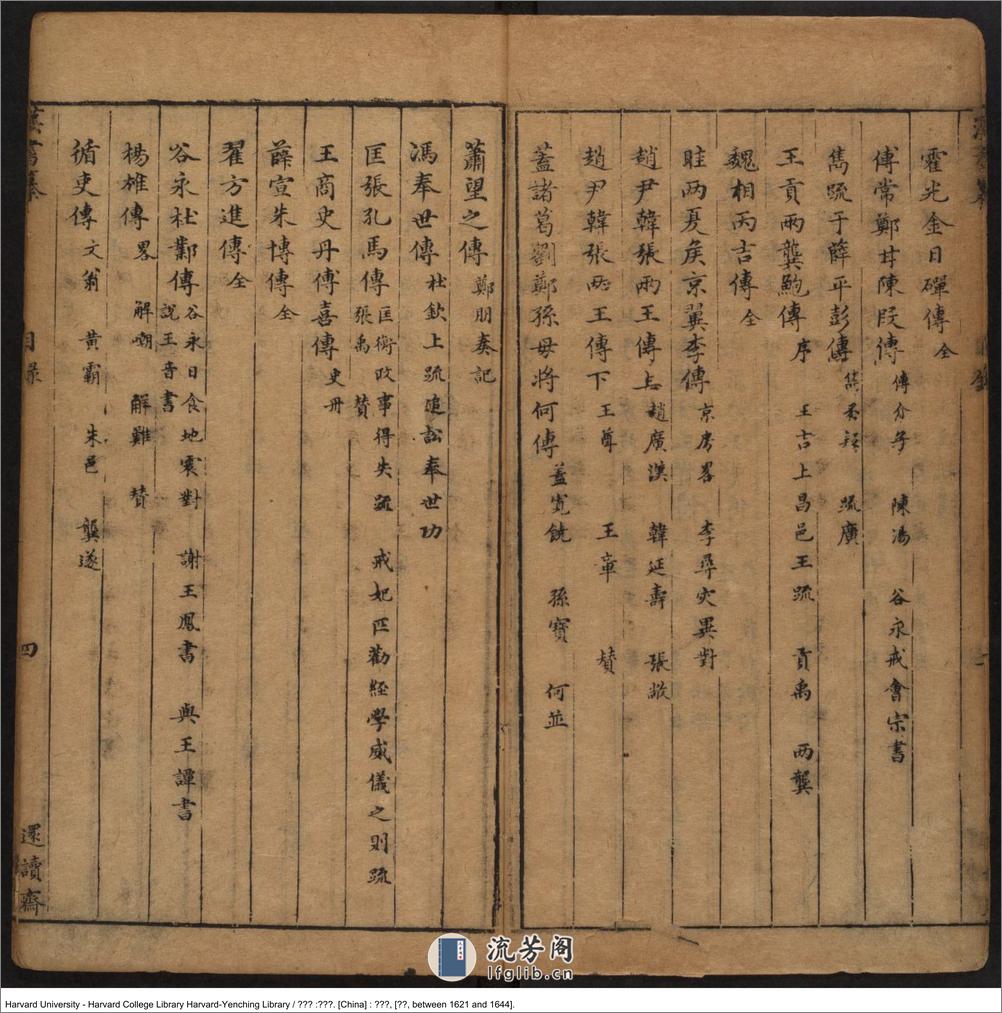 霍光金日磾傳 全
傅常鄭甘陳段傳 傅介子 陳湯 谷永戒會宗書
雋疏于薛平彭傳 雋不疑 疏廣
王貢兩龔鮑傳 序 王吉上昌邑王疏 貢禹 两龔
魏相丙吉傳 全
眭两夏矦京翼李傳 京房畧 李尋灾異對
趙尹韓張兩王傳上 趙廣漢 韓延壽 張敞
趙尹韓張两王傳下 王尊 王章 賛
蓋諸葛劉鄭孫毋將何傳 蓋寬饒 孫寶 何並
蕭望之傳 鄭朋奏記
馮奉世傳 杜欽上疏追訟奉世功
匡張孔馬傳 匡衡政事得失疏 戒妃匹勸經學威儀之則疏
張禹 賛
王商史丹傅喜傳 史丹
薛宣朱博傳 全
翟方進傳 全
谷永杜鄴傳 谷永日食地震對 謝王鳳書 與王譚書
說王音書
楊雄傳 畧 解嘲 解難 賛
循吏傳 文翁 黃霸 朱邑 龔遂
漢書纂
目錄
四
還讀齋
流芳阁
lfglib.cn
Harvard University - Harvard College Library Harvard-Yenching Library / ??? :???. [China] : ???, [??, between 1621 and 1644].